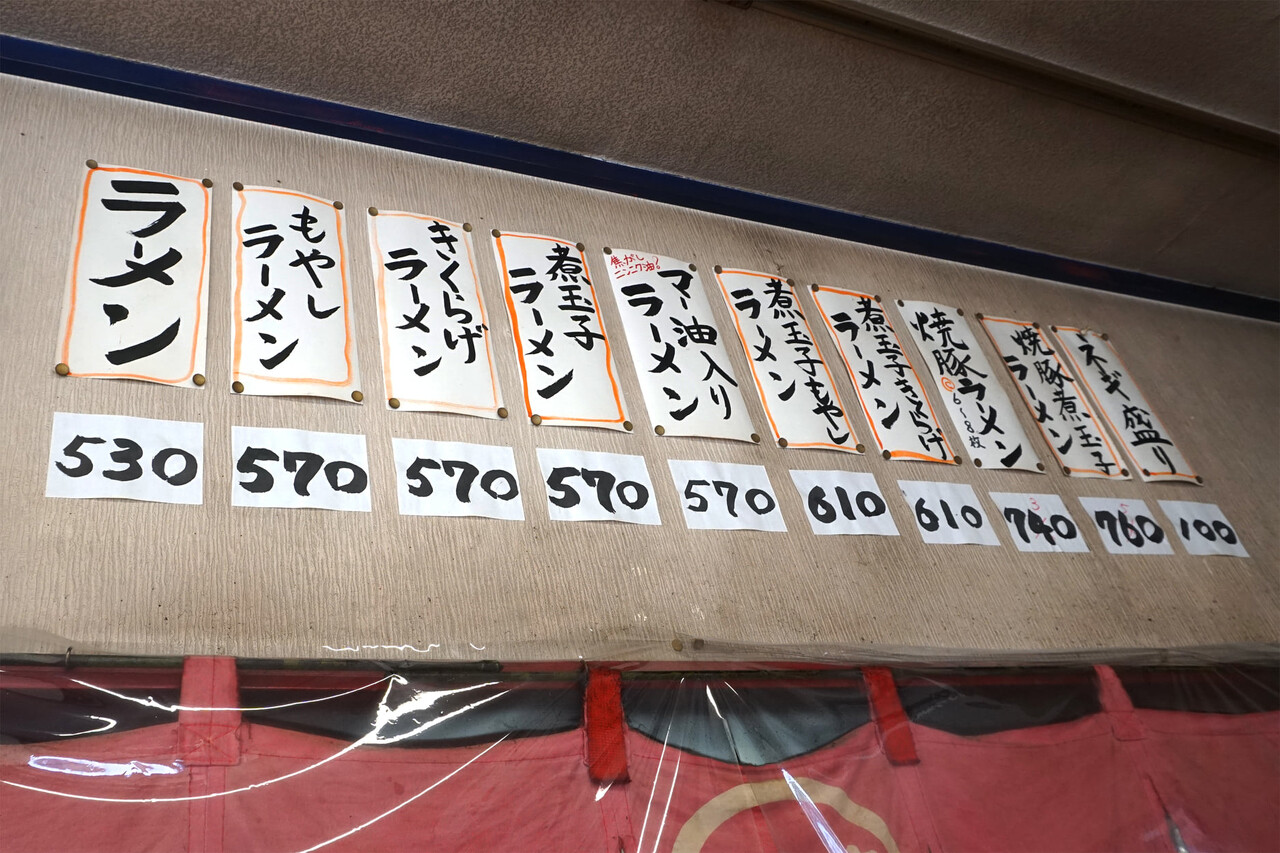 ラーメン
530
もやし
ラーメン
570
きくらげ
ラーメン
570
煮玉子
ラーメン
570
焦がし
ニンニク油!
マー油入り
ラーメン
570
煮玉子もやし
ラーメン
610
煮玉子きくらげ
ラーメン
610
焼豚ラーメン
6〜8枚
740
焼豚煮玉子
ラーメン
760
ネギ盛り
100